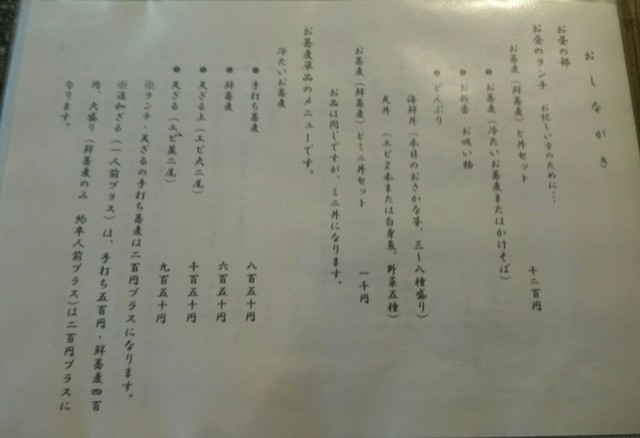 おしながき
お昼の部
お昼のランチ お忙しい方のために…
お蕎麦(鮮蕎麦)と丼セット 千二百円
● お蕎麦(冷たいお蕎麦またはかけそば)
● お新香 お吸い物
● どんぶり
海鮮丼(本日のおさかな等、三~八種盛り)
天丼 (エビ2本または白身魚、野菜五種)
お蕎麦(鮮蕎麦)とミニ丼セット 一千円
お品は同じですが、ミニ丼になります。
お蕎麦単品のメニューです。
冷たいお蕎麦
● 手打ち蕎麦 八百五十円
● 鮮蕎麦 六百五十円
● 天ざる上(エビ大二尾) 千百五十円
● 天ざる(エビ並二尾) 九百五十円
※ランチ・天ざるの手打ち蕎麦は二百円プラスになります。
※追加ざる(一人前プラス)は、手打ち五百円・鮮蕎麦四百
円、大盛り(鮮蕎麦のみ 約半人前プラス)は二百円プラスに
なります。